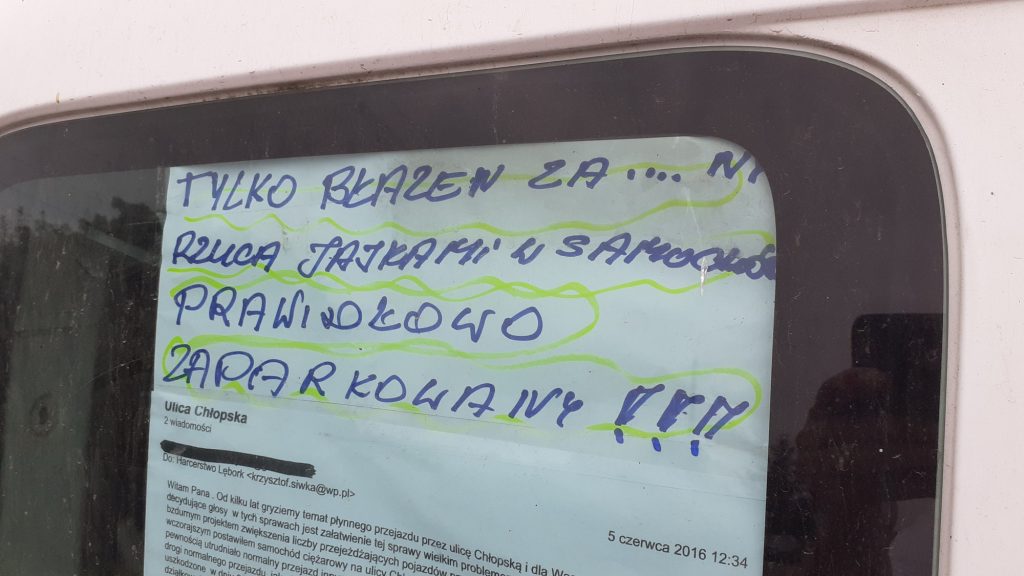 TYLKO BŁAZEN ZA .... NY
RZUCA JAJKAMI W SAMOCHÓD
PRAWIDŁOWO
ZAPARKOWANY !!!
Ulica Chłopska
2 wiadomości
Do: Harcerstwo Lębork <krzysztof.siwka@wp.pl>
5 czerwca 2016 12:34
Witam Pana . Od kilku lat gryziemy temat płynnego przejazdu przez ulicę Chłopską i dla
decydujące głosy w tych sprawach jest załatwienie tej sprawy wielkim problemem
bzdurnym projektem zwiększenia liczby przejeżdżających pojazdów
wczorajszym postawiłem samochód ciężarowy na ulicy
pewnością utrudniało normalny przejazd
drogi normalnego przejazdu
uszkodzone w dniu